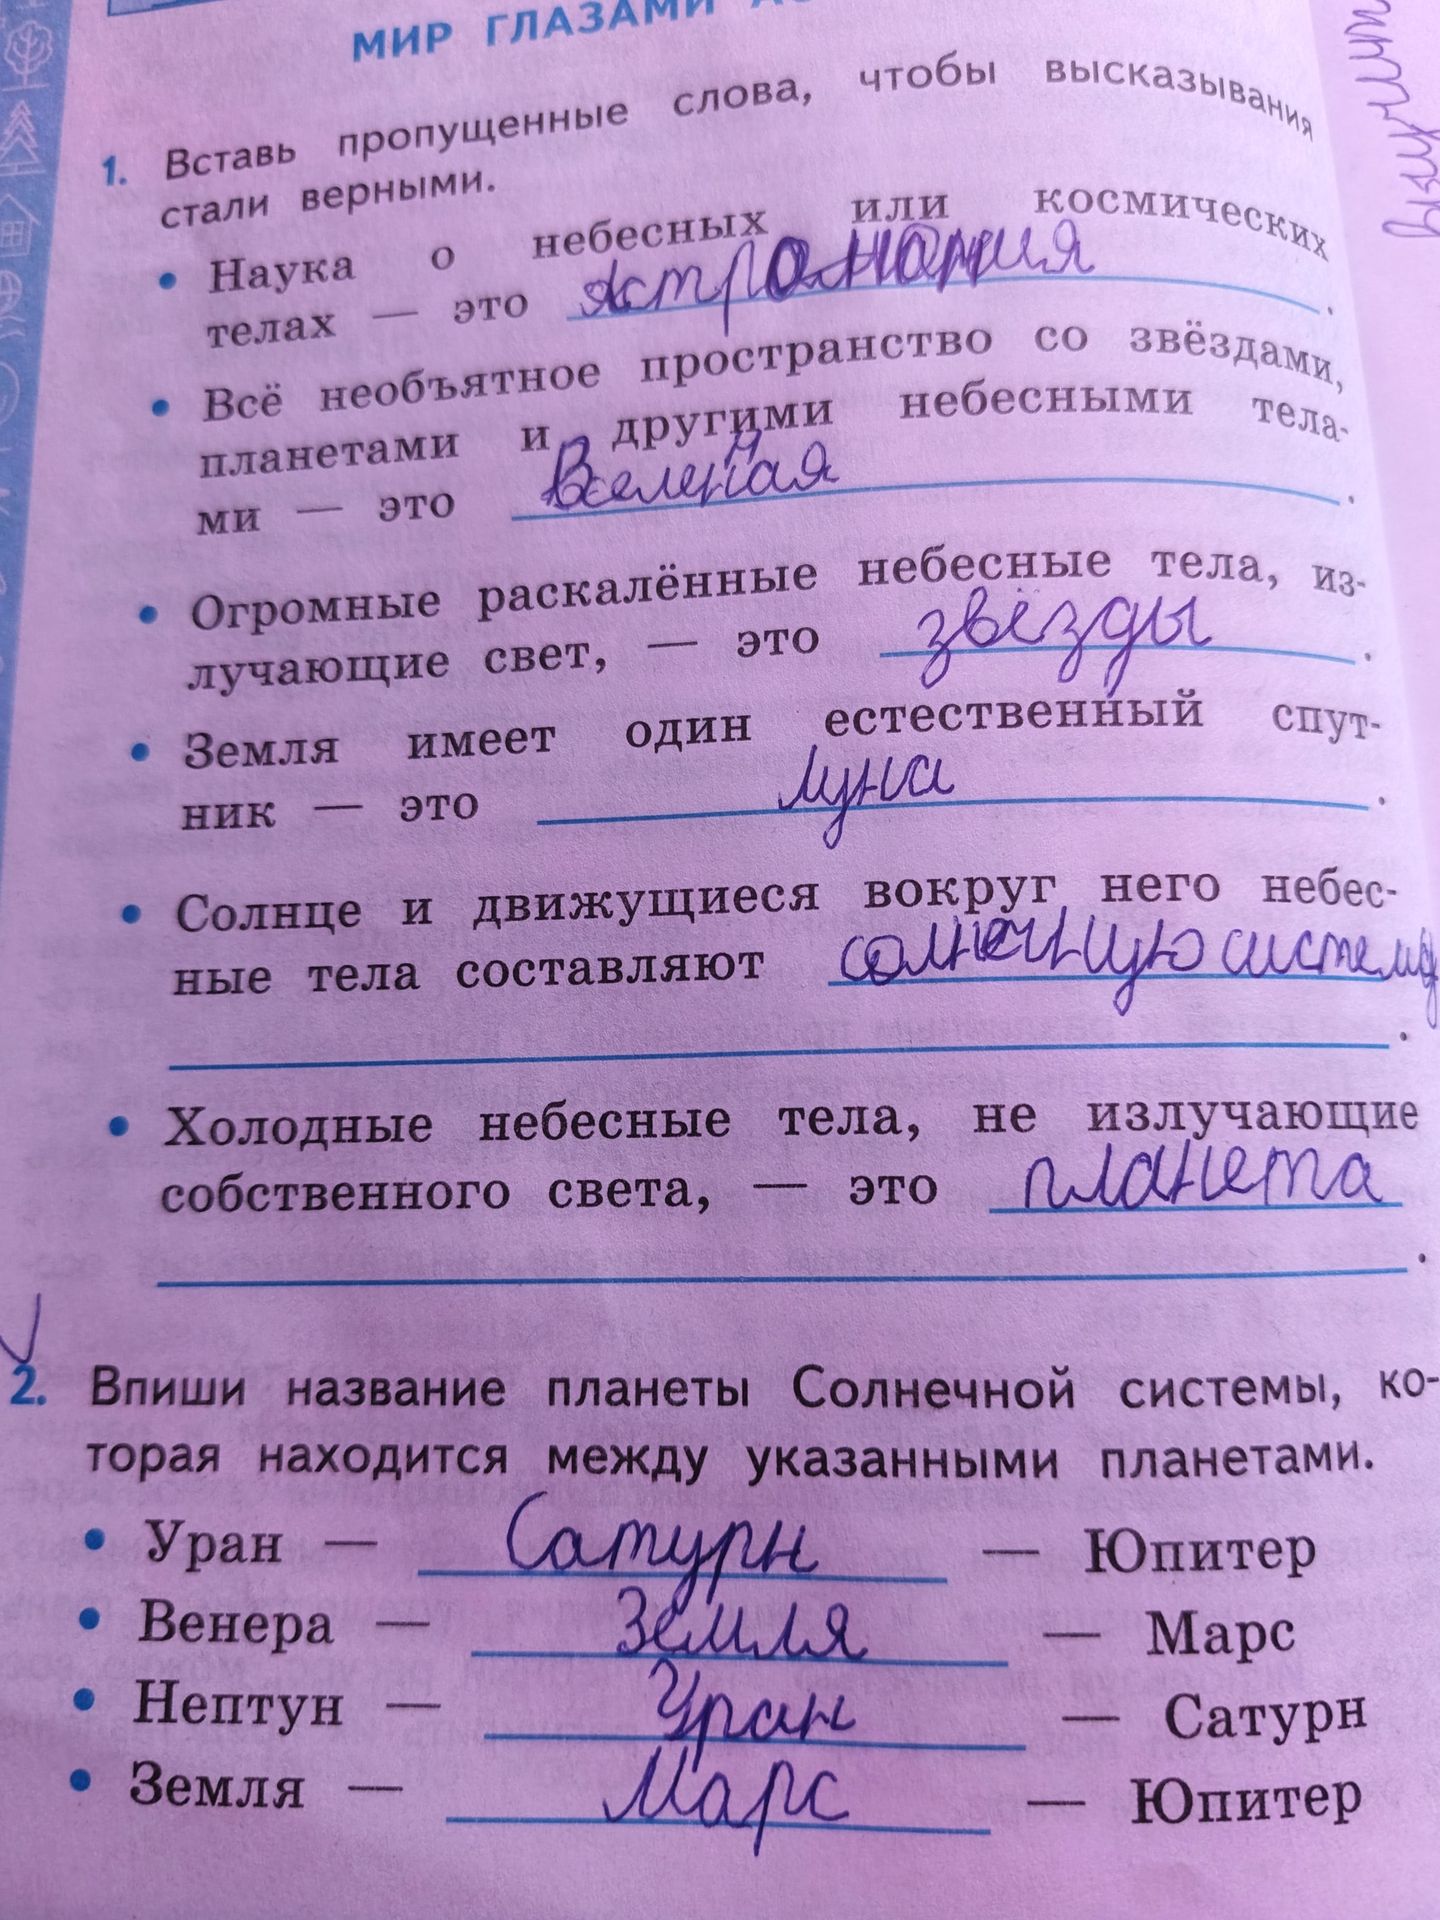 МИР ГЛАЗАМИ
1. Вставь пропущенные слова, чтобы высказывания
стали верными.
• Наука о небесных или космических
телах — это астрономия.
• Всё необъятное пространство со звёздами,
планетами и другими небесными тела-
н
ми — это Вселеная.
• Огромные раскалённые небесные тела, из-
лучающие свет, — это звёзды.
• Земля имеет один естественный спут-
ник — это луна.
• Солнце и движущиеся вокруг него небес-
ные тела составляют солнечную систему
.
• Холодные небесные тела, не излучающие
собственного света, — это планета
.
2. Впиши название планеты Солнечной системы, ко-
торая находится между указанными планетами.
• Уран — Сатурн — Юпитер
• Венера — Земля — Марс
• Нептун — Уран — Сатурн
• Земля — Марс — Юпитер